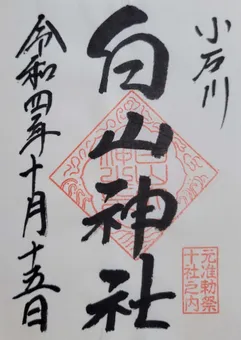 小石川
白山神社
令和四年十月十五日
元准勅祭
十社之内